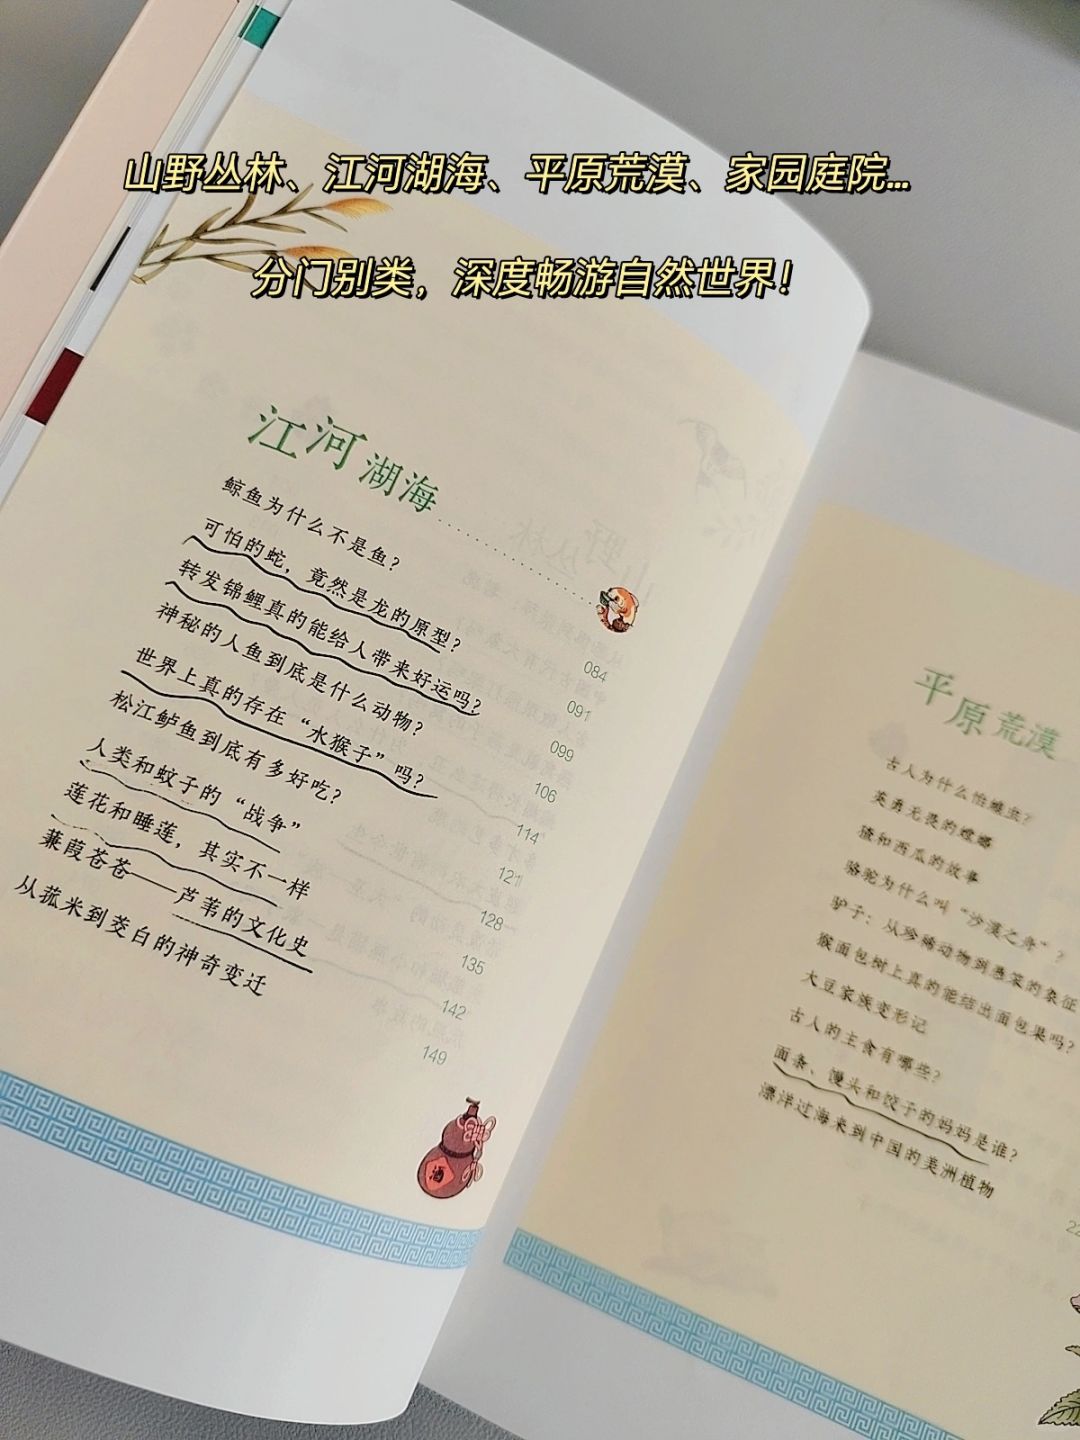 山野丛林、江河湖海、平原荒漠、家园庭院...
分门别类，深度畅游自然世界！
江河湖海
鲸鱼为什么不是鱼？
084
可怕的蛇，竟然是龙的原型？
091
转发锦鲤真的能给人带来好运吗？
099
神秘的人鱼到底是什么动物？
106
世界上真的存在“水猴子”吗？
114
松江鲈鱼到底有多好吃？
121
人类和蚊子的“战争”
128
莲花和睡莲，其实不一样
135
蒹葭苍苍——芦苇的文化史
142
从菰米到茭白的神奇变迁
149
酒
平原荒漠
古人为什么怕蝗虫？
英勇无畏的螳螂
猹和西瓜的故事
骆驼为什么叫“沙漠之舟”？
驴子：从珍稀动物到愚笨的象征
猴面包树上真的能结出面包果吗？
大豆家族变形记
古人的主食有哪些？
面条、馒头和饺子的妈妈是谁？
漂洋过海来到中国的美洲植物